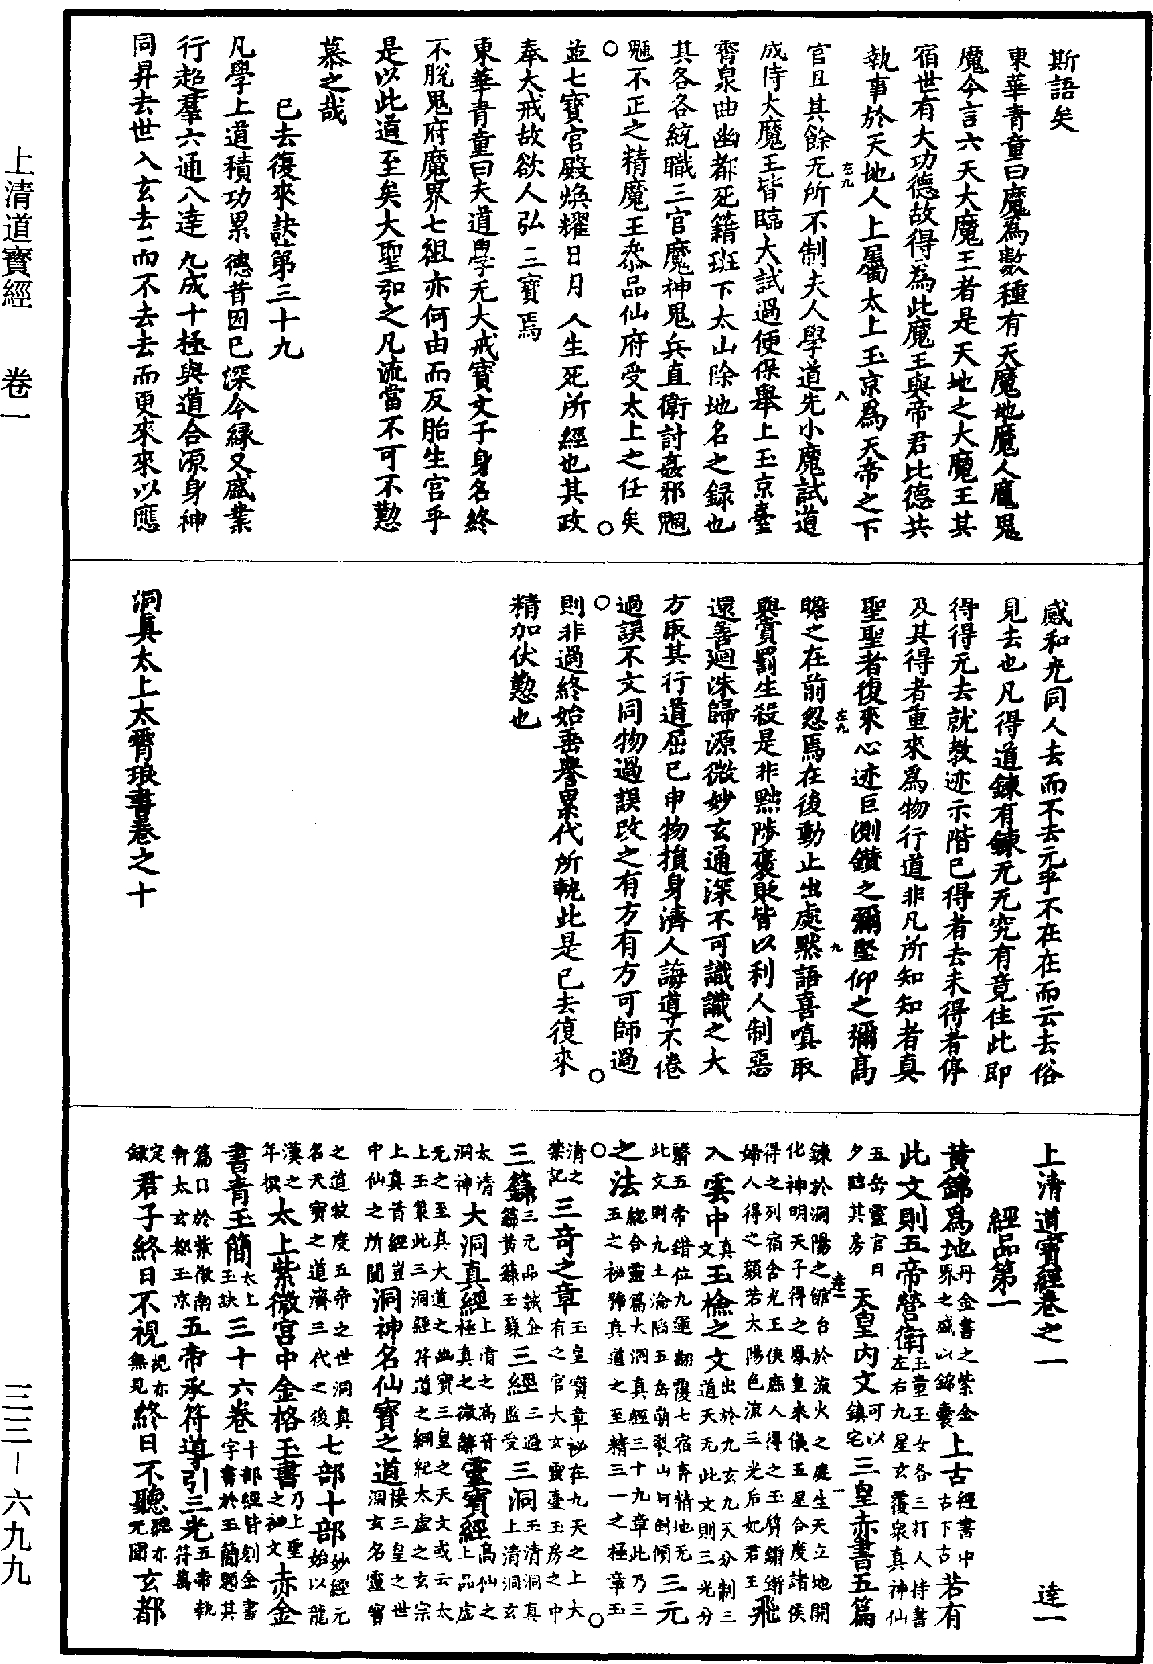 斯語矣
東華青童曰魔為數種有天魔地魔人魔鬼
魔今言六天大魔王者是天地之大魔王其
宿世有大功德故得為此魔王與帝君比德共
執事於天地人上屬太上玉京為天帝之下
官且其餘无所不制夫人學道先小魔試道
成侍大魔王皆臨大試過便保舉上玉京臺
齊泉曲幽都死籍班下太山除地名之録也
其各各統職三官魔神鬼兵直衛討姦邪魍
魎不正之精魔王忝品仙府受太上之任矣
並七寶官殿煥耀日月人生死所經也其政
奉大戒故欲人弘三寶焉
東華青童曰夫道學无大戒寶文于身名終
不脫鬼府魔界七祖亦何由而反胎生官乎
是以此道至矣大聖弘之凡流當不可不懃
慕之哉
已去復來訣第三十九
凡學上道積功累德昔因已深今緣又感業
行超羣六通八達九成十極與道合源身神
同昇去世入玄去而不去去而更來來以應
感和光同人去而不去元乎不在在而云去俗
見去也凡得道鍊有鍊无无究有竟住此即
得得无去就教迹示階已得者去未得者停
及其得者重來為物行道非凡所知知者真
聖聖者復來心迹叵測鑽之彌堅仰之彌高
瞻之在前忽焉在後動止出處黙語喜嗔取
與賞罰生殺是非黜陟褒貶皆以利人制惡
還善迴洙歸源微妙玄通深不可識識之大
方取其行道屈已申物損身濟人誨導不倦
過誤不文同物過誤改之有方有方可師過
則非過終始垂譽累代所軌此是已去復來
精加伏懃也
洞真太上太霄琅書卷之十
上清道寶經卷之一 達一
經品第一
黃錦為地丹金書之紫金界之盛以錦囊上古經書中古下古若有
此文則五帝營衛玉童玉女各三打人持書左右九星玄覆泉真神仙
五岳靈官日夕臨其房天皇内文可以鎮宅三皇赤書五篇
鍊於洞陽之館台於流火之庭生天立地開化神明天子得之鳳皇來儀五星合度諸侯
得之列宿含光王侯庶人得之玉質鏘鏘婦人得之顔若太陽色流三光后妃君王飛
入雲中真文玉檢之文出於九玄九天分制三道天无此文則三光分
驎五帝錯位九運翻覆七宿奔精地无此文則九土淪陷五岳崩裂山河倒傾三元
之法總合靈篇大洞真經三十九章此乃三五之祕號真道之至精三一之極章玉
清之禁記三奇之章玉皇寶章祕在九天之上大有之官大玄靈臺玉房之中
三籙三元品誡金籙黃籙玉籙三經三過監受三洞玉清洞真上清洞玄
太清洞神大洞真經上清之高音極真之微辭靈寶經高仙之上品虛
无之至真大道之幽寶三皇之天文或云太上玉策此三洞經符道之綱紀太虛之玄宗
上真首經豈中仙之所聞洞神名仙寶之道接三皇之世洞玄名靈寶
之道被度五帝之世洞真名天寶之道濟三代之後七部十部妙經元始以龍
漢之年撰太上紫微宮中金格玉書乃上聖之祕文赤金
書青玉簡太上玉訣三十六卷十部經皆刻金書字書於玉簡題其
篇目於紫微南軒太玄都玉京五帝承符導引三光五帝執符萬
定録君子終日不視視亦無見終日不聽聽亦无聞玄都
上清道寶經 卷一
三三－六九九